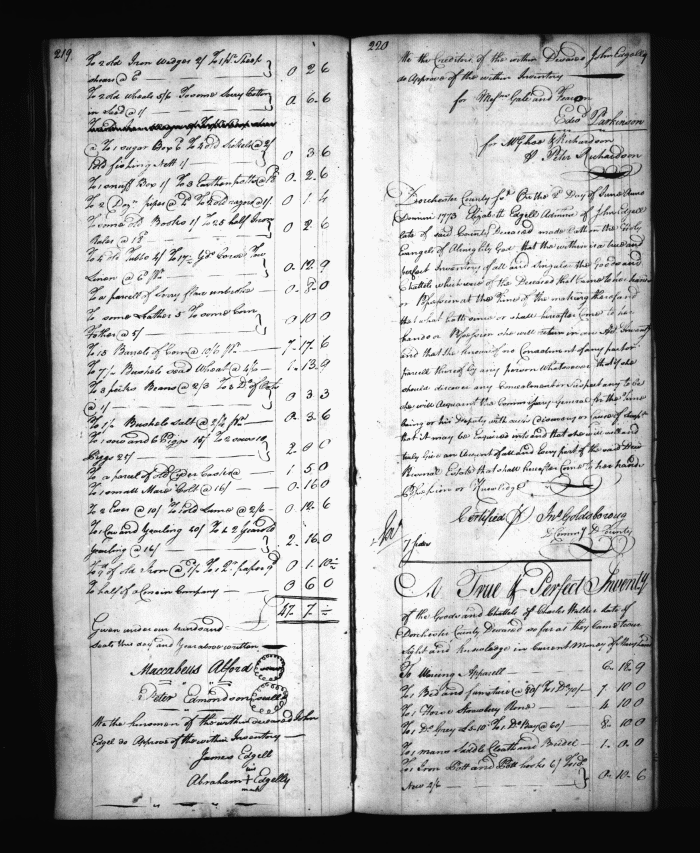 219
To 2 old Iron Wedges 2/ To 1 pr Sheep
shears @ 6 0 2 6
To 2 old wheals 5/6 To some Seery Cotton
in Seed @ 1/ 0 6 6
@ To 1 sugar Box 6 To 4 old Sickels @ 2/
1 old fishing Nett 1/ 0 3 6
To 1 snuff Box 1/ To 3 Earthen potts @ 0 2 6
0 1 4
To some old Books 1/ To 23 half
0 2 6
To 4 old Tubbs 4/ To 17 yds Coarse Tow
Linen @ 0 12 9
To a parcell of flax unbroke 0 8 0
To some Leather 5 To some Corn
Fother @ 5/ 0 10 0
To 15 Barrels of Corn @ 10/6 7 17 6
To 7 1/2 Bushels Seed Wheat @ 4/6 1 13 9
To 3 pecks Beans @ 2/3 To 3 Do of
@ 1/ 0 3 3
Bushels Salt @ 0 3 6
To 1 sow and 6 Piggs 15/ To 2 sows 10
Piggs 25/ 2 0 0
To a parcel of old Cyder Casks @ 1 5 0
To 1 small Mare Colt @ 16/ 0 16 0
To 2 Ewes @ 10/ To 1 old Lamb @ 2/6 0 12 6
To 1 Cow and Yearling 40/ To 2 Year old
Yearling @ 16/ 2 16 0
of old Iron @ To 1 paper 0 1 10 1/2
To half of a Company 0 6 0
47 7
Given under our hands and
Seals this day and Year above written
Maccabeus Alford
Peter Edmondson
We the kinsmen of the within deceased John
Edgel do Approve of the within Inventory
James Edgell
his
Abraham + Edgelly
mark
220
We the Creditors of the within Deceased John Edgelly
do Approve of the within Inventory
for Messrs Gale and Fearon
Edwd Parkinson
for McGhee & Richardson
P Peter Richardson
Dorchester County Ss. On the 2d Day of June Anno
Domini 1773 Elizabeth Edgell Adminx of John Edgell
late of said County Deceased made Oath on the Holy
Evangels of Almighty God that the within is a true and
perfect Inventory of all and singular the Goods and
Chattels which were of the Deceased that Came to her hands
or Possession at the time of the making thereof and
that what hath come or shall hereafter come to her
hands or Possession she will return in an Addl Inventory
and that she knows of no Concealment of any part or
parcell thereof by any person Whatsoever that if she
should discover any Concealment or Suspect any to be
she will Acquaint the Commissary General for the Time
being or his Deputy with such discovery or Cause of Suspect
that it may be Enquired into and that she will well and
truly Give an Account of all and every part of the said Decd
Personal Estate that shall hereafter Come to her hands
Possession or Knowledge
Certified P Jno Goldsborough
D Commy D County
7 sides
A True & Perfect Inventy
of the Goods and Chattels of Charles Walker late of
Dorchester County Deceased so far as they Came to our
Sight and Knowledge in Current Money of Maryland
To Wearing Apparell 6 18 9
To 1 Bed and furniture @ 80/ To 1 Do 70/ 7 10 0
To 1 Horse Strawbery Rone 4 10 0
To 1 Do Grey £5.10 To 1 Do Bay @ 60/ 8 10 0
To 1 mans Saddle Cloath and Bridel 1 0 0
To 1 Iron Pott and Pott hooks 6/ To 1 Do
2/6 0 10 6